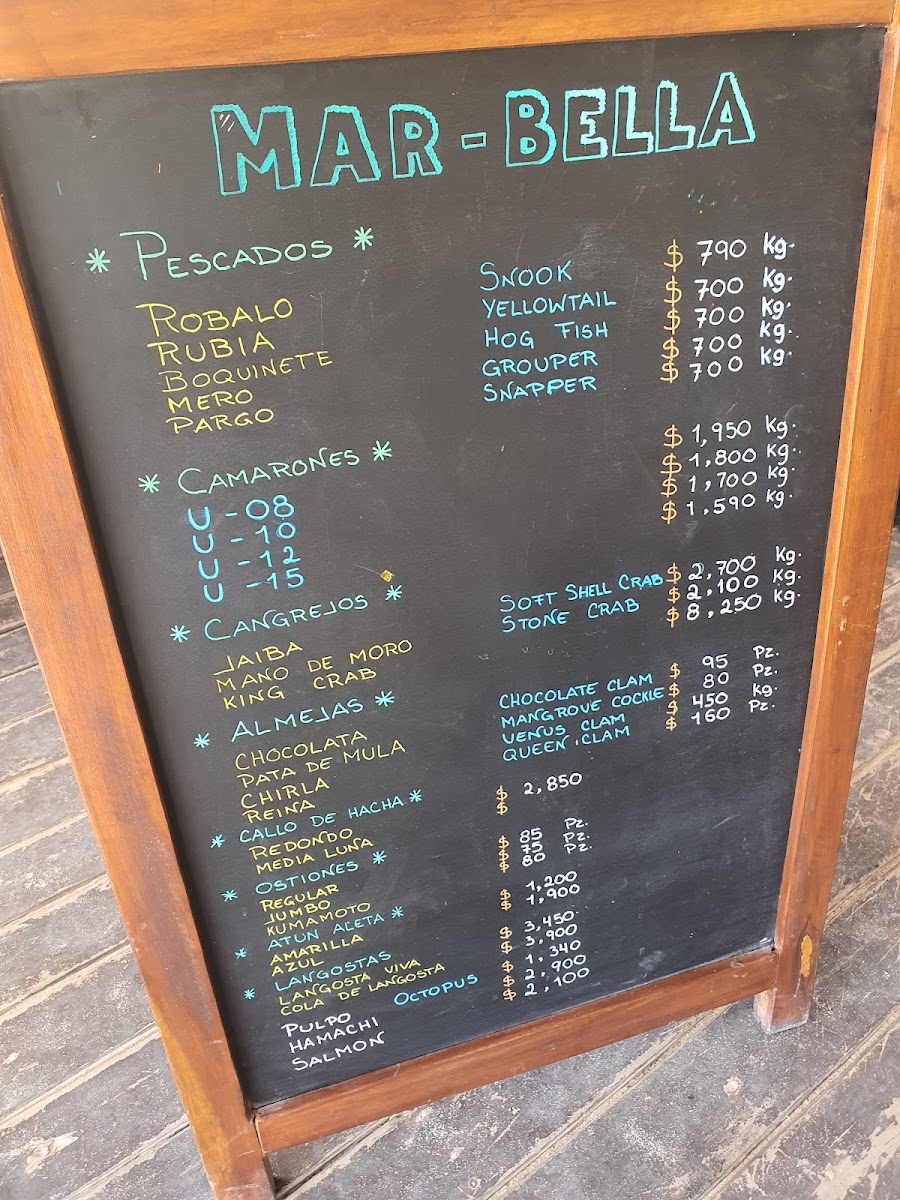 MAR-BELLA
* PESCADOS *
ROBALO SNOOK $ 790 kg.
RUBIA YELLOWTAIL $ 700 kg.
BOQUINETE HOG FISH $ 700 kg.
MERO GROUPER $ 700 kg.
PARGO SNAPPER $ 700 kg.
* CAMARONES *
U-08 $ 1,950 kg.
U-10 $ 1,800 kg.
U-12 $ 1,700 kg.
U-15 $ 1.590 kg.
* CANGREJOS *
JAIBA SOFT SHELL CRAB $ 2,700 kg.
MANO DE MORO STONE CRAB $ 2,100 kg.
KING CRAB $ 8,250 kg.
* ALMEJAS *
CHOCOLATA CHOCOLATE CLAM $ 95 Pz.
PATA DE MULA MANGROVE COCKLE $ 80 Pz.
CHIRLA VENUS CLAM $ 450 kg.
REINA QUEEN CLAM $ 160 Pz.
* CALLO DE HACHA *
REDONDO $ 2,850
MEDIA LUNA $
* OSTIONES *
REGULAR $ 85 Pz.
JUMBO $ 75 Pz.
KUMAMOTO $ 80 Pz.
* ATUN ALETA *
AMARILLA $ 1,200
AZUL $ 1,900
* LANGOSTAS
LANGOSTA VIVA $ 3,450
COLA DE LANGOSTA $ 3,900
PULPO OCTOPUS $ 1,340
HAMACHI $ 2,900
SALMON $ 2,100